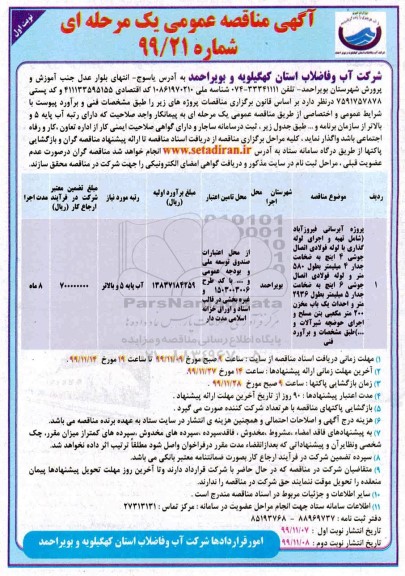 نوبت اول
آگهی مناقصه عمومی یک مرحله ای
شماره ۹۹/۲۱
شرکت آب وفاضلاب استان کهگیلویه و بویراحمد به آدرس یاسوج- انتهای بلوار عدل جنب آموزش و
پرورش شهرستان بویراحمد- تلفن ۳۳۳۴۱۱۱۱-۰۷۴ شناسه ملی ۱۰۸۶۱۹۷۰۲۱۰ کد اقتصادی ۴۱۱۱۳۳۵۹۵۱۵۵ و کد پستی
۷۵۹۱۷۵۷۸۷۸ درنظر دارد بر اساس قانون برگزاری مناقصات پروژه های زیر را طبق مشخصات فنی و برآورد پیوست با
شرایط عمومی و اختصاصی از طریق مناقصه عمومی یک مرحله ای به پیمانکار واجد صلاحیت که دارای رتبه آب پایه ۵ و
بالاتر از سازمان برنامه و ... طبق جدول زیر ، ثبت درسامانه ساجار و دارای گواهی صلاحیت ایمنی کار از اداره تعاون ،کار و رفاه
اجتماعی باشد واگذار نماید، کلیه مراحل برگزاری مناقصه از دریافت اسناد مناقصه تا ارائه پیشنهاد مناقصه گران و بازگشایی
پاکتها از طریق درگاه سامانه ستاد به آدرس www.setadiran.ir انجام خواهد شد مناقصه گران درصورت عدم
عضویت قبلی ، مراحل ثبت نام در سایت مذکور و دریافت گواهی امضای الکترونیکی را جهت شرکت در مناقصه محقق سازند.
ردیف موضوع مناقصه شهرستان محل اجرا محل تامین اعتبار مبلغ برآورد اولیه (ریال) رتبه مورد نیاز مبلغ تضمین معتبر شرکت در فرآیند ارجاع کار (ریال) مدت اجرا
۱ پروژه آبرسانی فیروزآباد (شامل تهیه و اجرای لوله گذاری با لوله فولادی اتصال جوشی ۴ اینچ به ضخامت جدار ۴ میلیمتر بطول ۵۸۰ متر و لوله فولادی اتصال جوشی ۶ اینچ به ضخامت جدار ۵ میلیمتر بطول ۲۹۳۶ متر و احداث یک باب مخزن ۲۰۰ متر مکعبی بتن مسلح و اجرای حوضچه شیرآلات و ...)طبق مشخصات و برآورد فنی
بویراحمد
از محل اعتبارات صندوق توسعه ملی و بودجه عمومی و ... با کد طرح ۱۵۰۳۰۰۳۰۰۶ و غیره بخشی در قالب اسناد و اوراق خزانه اسلامی مدت دار
۱۳۸۳۷۱۸۴۲۵۹ آب پایه ۵ و بالاتر ۷۰۰۰۰۰۰۰۰ ۸ ماه
۱) مهلت زمانی دریافت اسناد مناقصه از سایت : ساعت ۹ صبح مورخ ۹۹/۱۱/۰۸ تا ساعت ۱۹ مورخ ۹۹/۱۱/۱۴ .
۲) آخرین مهلت زمانی ارائه پیشنهادها : ساعت ۱۴ مورخ ۹۹/۱۱/۲۷ .
۳) زمان بازگشایی پاکتها : ساعت ۹ صبح مورخ ۹۹/۱۱/۲۸ .
۴) مدت اعتبار پیشنهادها : ۹۰ روز از تاریخ آخرین مهلت ارائه پیشنهاد .
۵) بازگشایی پاکتهای مناقصه با هرتعداد شرکت کننده صورت می گیرد .
۶) هزینه درج آگهی و اصلاحات احتمالی و همچنین هزینه ی انتشار در سایت ستاد به عهده برنده مناقصه می باشد.
۷) به پیشنهادهای فاقد امضاء ،مشروط ،مخدوش ، فاقدسپرده ،سپرده های مخدوش ،سپرده های کمتراز میزان مقرر، چک
شخصی ونظایرآن و پیشنهاداتی که بعدازانقضاء مدت مقرر درفراخوان واصل شود مطلقاً ترتیب اثر داده نخواهد شد.
۸) سپرده تضمین شرکت در فرآیند ارجاع کار بصورت ضمانتنامه معتبر بانکی می باشد.
۹) متقاضیان شرکت در مناقصه که در حال حاضر با شرکت قرارداد دارند وتا آخرین روز مهلت تحویل پیشنهادها پیمان
منعقده را تحویل موقت ننمایند حق شرکت در مناقصه را ندارند.
۱۰) سایر اطلاعات و جزئیات مربوط در اسناد مناقصه مندرج است .
۱۱) اطلاعات سامانه ستاد جهت انجام مراحل عضویت در سامانه : مرکز تماس : ۲۷۳۱۳۱۳۱
دفتر ثبت نامه : ۸۸۹۶۹۷۳۷ – ۸۵۱۹۳۷۶۸
تاریخ انتشار نوبت اول : ۹۹/۱۱/۰۷
تاریخ انتشار نوبت دوم : ۹۹/۱۱/۰۸
امورقراردادها شرکت آب وفاضلاب استان کهگیلویه و بویراحمد